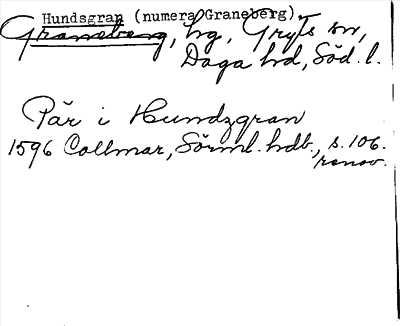 Hundsgran (numera Graneberg)
Graneberg, hg, Gryts sn,
Daga hd, Söd. l.
Pär i Hundzgran
1596 Collmar, Sörml. hdb., s. 106.
renov.